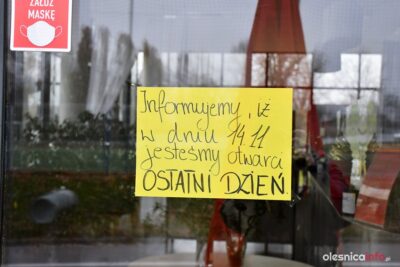 ZAŁÓŻ
MASKĘ
Informujemy, iż
w dniu 14.11
jesteśmy otwarci
OSTATNI DZIEŃ
olesnicainfo.pl